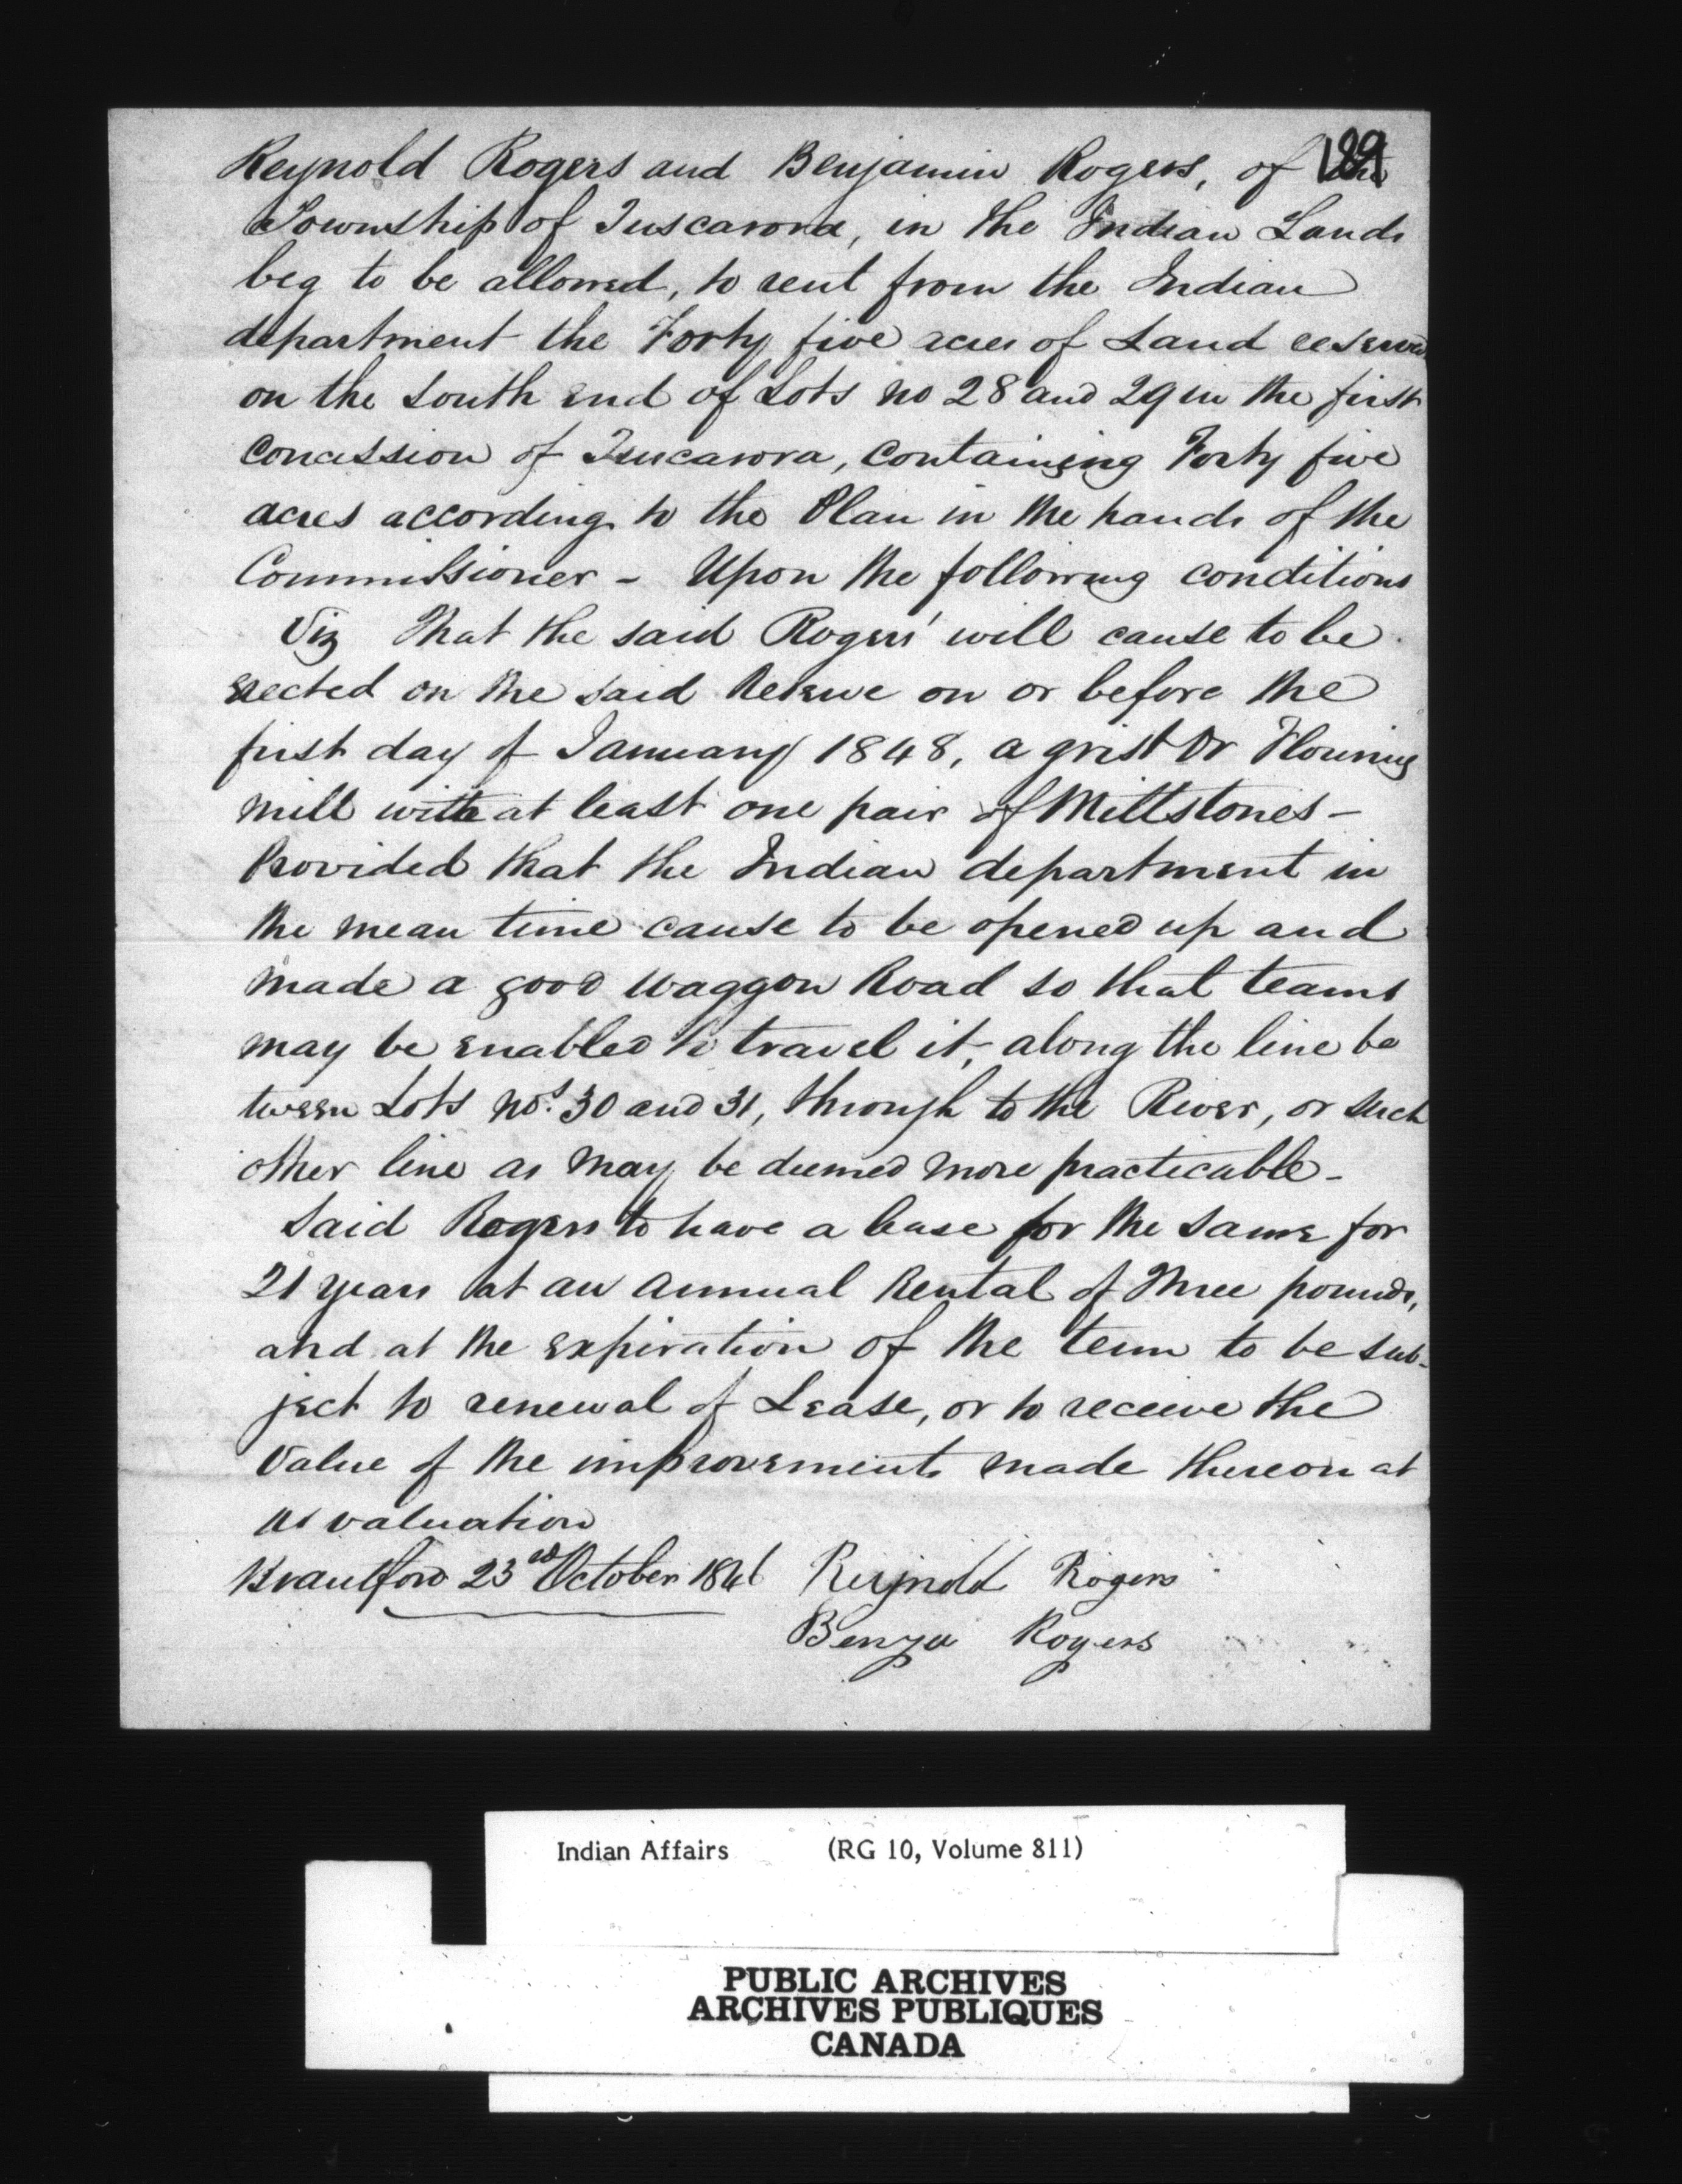 189
Reynold Rogers and Benjamin Rogers, of the
Township of Tuscarora, in the Indian Lands
beg to be allowed, to rent from the Indian
department the Forty five acres of Land reserved
on the South end of Lots no 28 and 29 in the first
Concession of Tuscarora, Containing Forty five
acres according to the Plan in the hands of the
Commissioner - Upon the following conditions
Viz That the said Rogers' will cause to be
erected on the said Reserve on or before the
first day of January 1848, a grist Or Flouring
Mill with at least one pair of Millstones -
Provided that the Indian department in
the mean time cause to be opened up and
made a good Waggon Road so that teams
may be enabled to travel it, along the line be
tween Lots Nos. 30 and 31, through to the River, or such
other line as may be deemed more practicable -
Said Rogers to have a lease for the same for
21 years at an annual Rental of Three pounds,
and at the expiration of the term to be sub-
ject to renewal of Lease, or to receive the
Value of the improvements made thereon at
valuation
Brantford 23rd October 1846 Reynold Rogers
Benja Rogers
Indian Affairs (RG 10, Volume 811)
PUBLIC ARCHIVES
ARCHIVES PUBLIQUES
CANADA